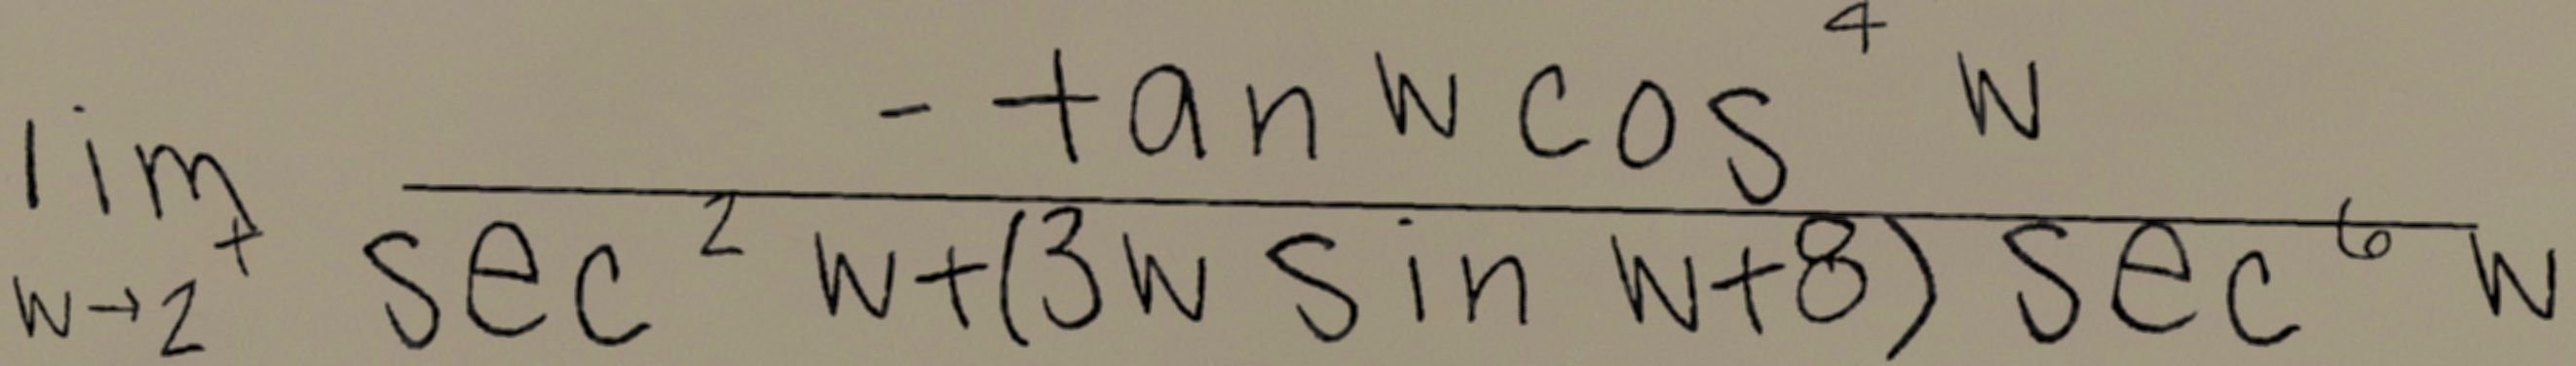 \lim_{w \to 2^+} \frac{-\tan w \cos^4 w}{\sec^2 w + (3w \sin w + 8) \sec^6 w}